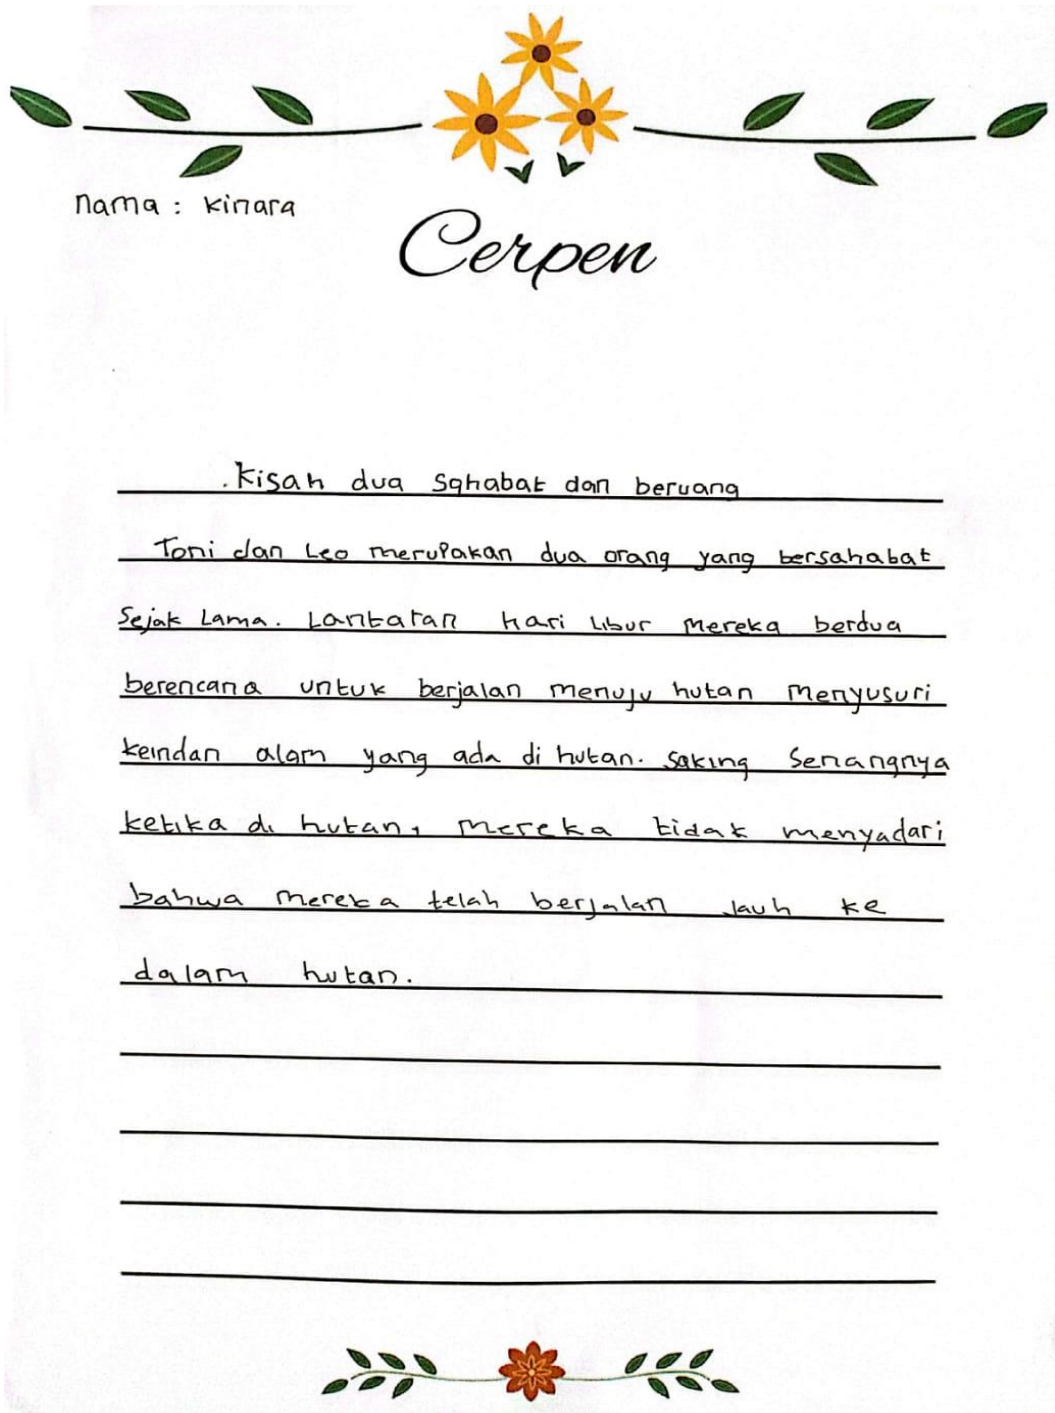 nama : kinara
Cerpen
. Kisah dua sahabat dan beruang
Toni dan Leo merupakan dua orang yang bersahabat
Sejak Lama. Lantaran hari libur mereka berdua
berencana untuk berjalan menuju hutan menyusuri
keindan alam yang ada di hutan. saking senangnya
ketika di hutan, mereka tidak menyadari
bahwa mereka telah berjalan jauh ke
dalam hutan.